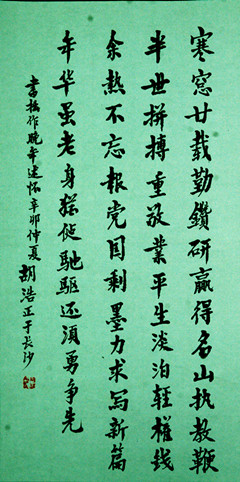 寒窓廿载勤鑽研赢得名山执教鞭
半世拼搏重敬業平生淡泊轻權钱
余熱不忘报党国剩墨力求写新篇
年华虽老身猶使驰驱还須勇争先
书拙作晚年述怀辛卯仲夏胡浩正于长沙